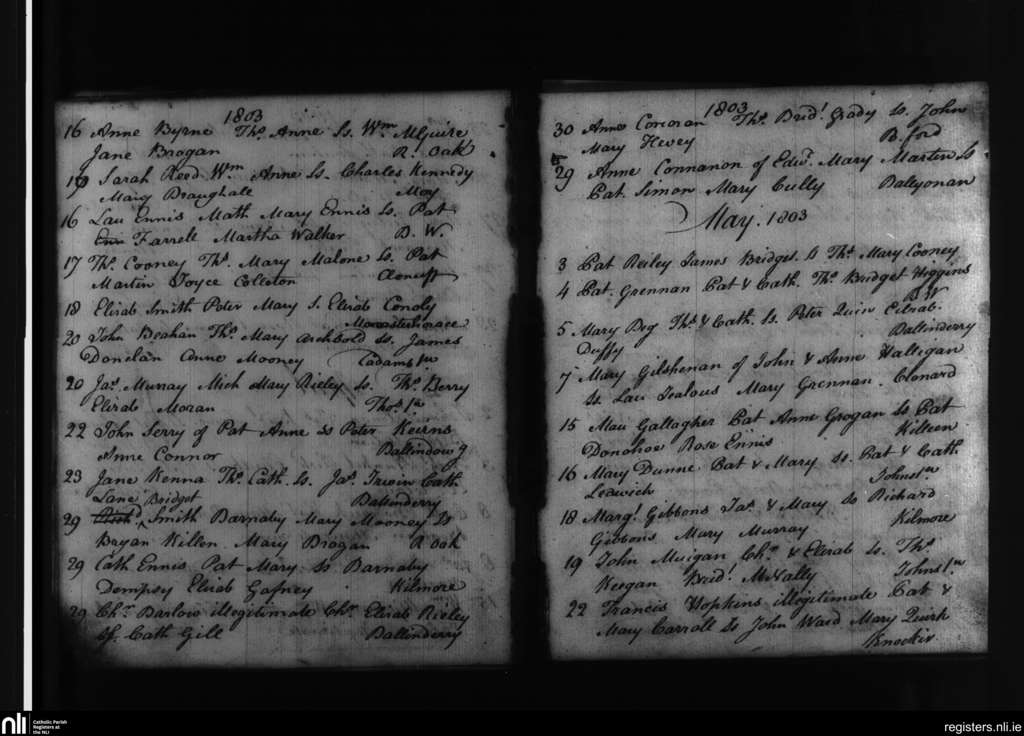 1803
16 Anne Byrne Thos. Anne Ss. Wm McGuire
Jane Brogan R. Oak
19 Sarah Reed Wm Anne Ss. Charles Kennedy
Mary Draughale Moy
16 Lau Ennis Math Mary Ennis Ss. Pat
Farrell Martha Walker B. W.
17 Thos. Cooney Thos. Mary Malone Ss. Pat
Martin Joyce Colleton Cloncuff
18 Elizab Smith Peter Mary S. Elizab Conoly
Monasterhorace
20 John Beahan Thos. Mary Archbold Ss. James
Donelan Anne Mooney Cadamstn
20 Jas. Murray Mich Mary Rieley Ss. Thos. Berry
Elizab Moran Thos. tn
22 John Serry of Pat Anne Ss Peter Keerns
Anne Connor Ballindow
23 Jane Kenna Thos. Cath. Ss. Jas. Irwin Cath
Lane Bridget Ballinderry
29 Smith Barnaby Mary Mooney Ss
Bryan Killen. Mary Brogan R Oak
29 Cath Ennis Pat Mary Ss Barnaby
Dempsey Elizab Gafney Kilmore
29 Chr. Barlow illegitimate Chr. Elizab Rieley
Ss. Cath Gill Ballinderry
1803
30 Anne Corcoran Thos. Bridt. Grady Ss. John
Mary Hevey B. ford
29 Anne Connanon of Edwd. Mary Martin Ss
Pat. Simon Mary Cully Ballyonan
May. 1803
3 Pat Reiley James Bridget. Ss Thos. Mary Cooney
4 Pat. Grennan Pat & Cath. Thos. Bridget Higgins
B. W
5 Mary Beg Thos. & Cath. Ss. Peter Quin Elizab.
Duffy Ballinderry
7 Mary Gilshenan of John & Anne Halligan
Ss Lau Jealous Mary Grennan. Clonard
15 Mau Gallagher Pat Anne Grogan Ss Pat
Donohoe Rose Ennis Killeen
16 Mary Dunne. Pat & Mary Ss. Pat & Cath
Leawich Johnstn
18 Margt. Gibbons Jas. & Mary Ss Richard
Gibbons Mary Murray Kilmore
19 John Muigan Chr. & Elizab Ss. Thos.
Keegan Bridt. McNally Johnstn
22 Francis Hopkins illegitimate Pat &
Mary Carroll Ss John Ward Mary Quirk
Knockir
nli
Catholic Parish
Registers at
the NLI
registers.nli.ie